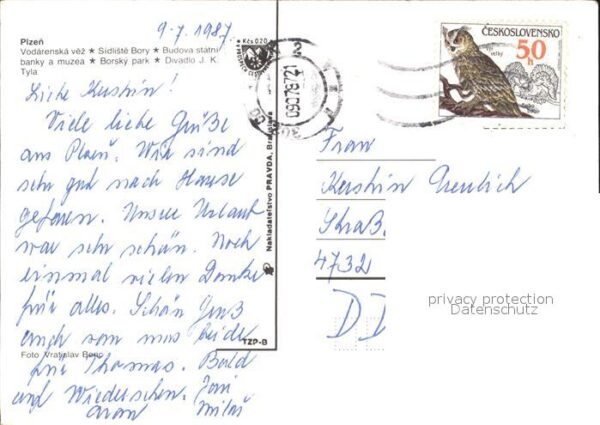 9-7. 1987.
Plzeň
Vodárenská věž ★ Sídliště Bory ★ Budova státní
banky a muzea ★ Borský park ★ Divadlo J. K.
Tyla
Liebe Kerstin!
Viele liebe Grüße
aus Plzeň. Wir sind
sehr gut nach Hause
gefaren. Unser Urlaub
war sehr schön. Noch
einmal vielen Danke
für alles. Schön Gruß
auch von uns beide
Foto Vratislav Beno
für Thomas. Bald
auf Wiedersehen. Jani
Miloš
Nakladatelstvo PRAVDA, Bratislava
TZP-8
Kčs 0,20
09078721
ČESKOSLOVENSKO
50 h
Frau
Kerstin
Straß.
4732
DD
privacy protection
Datenschutz